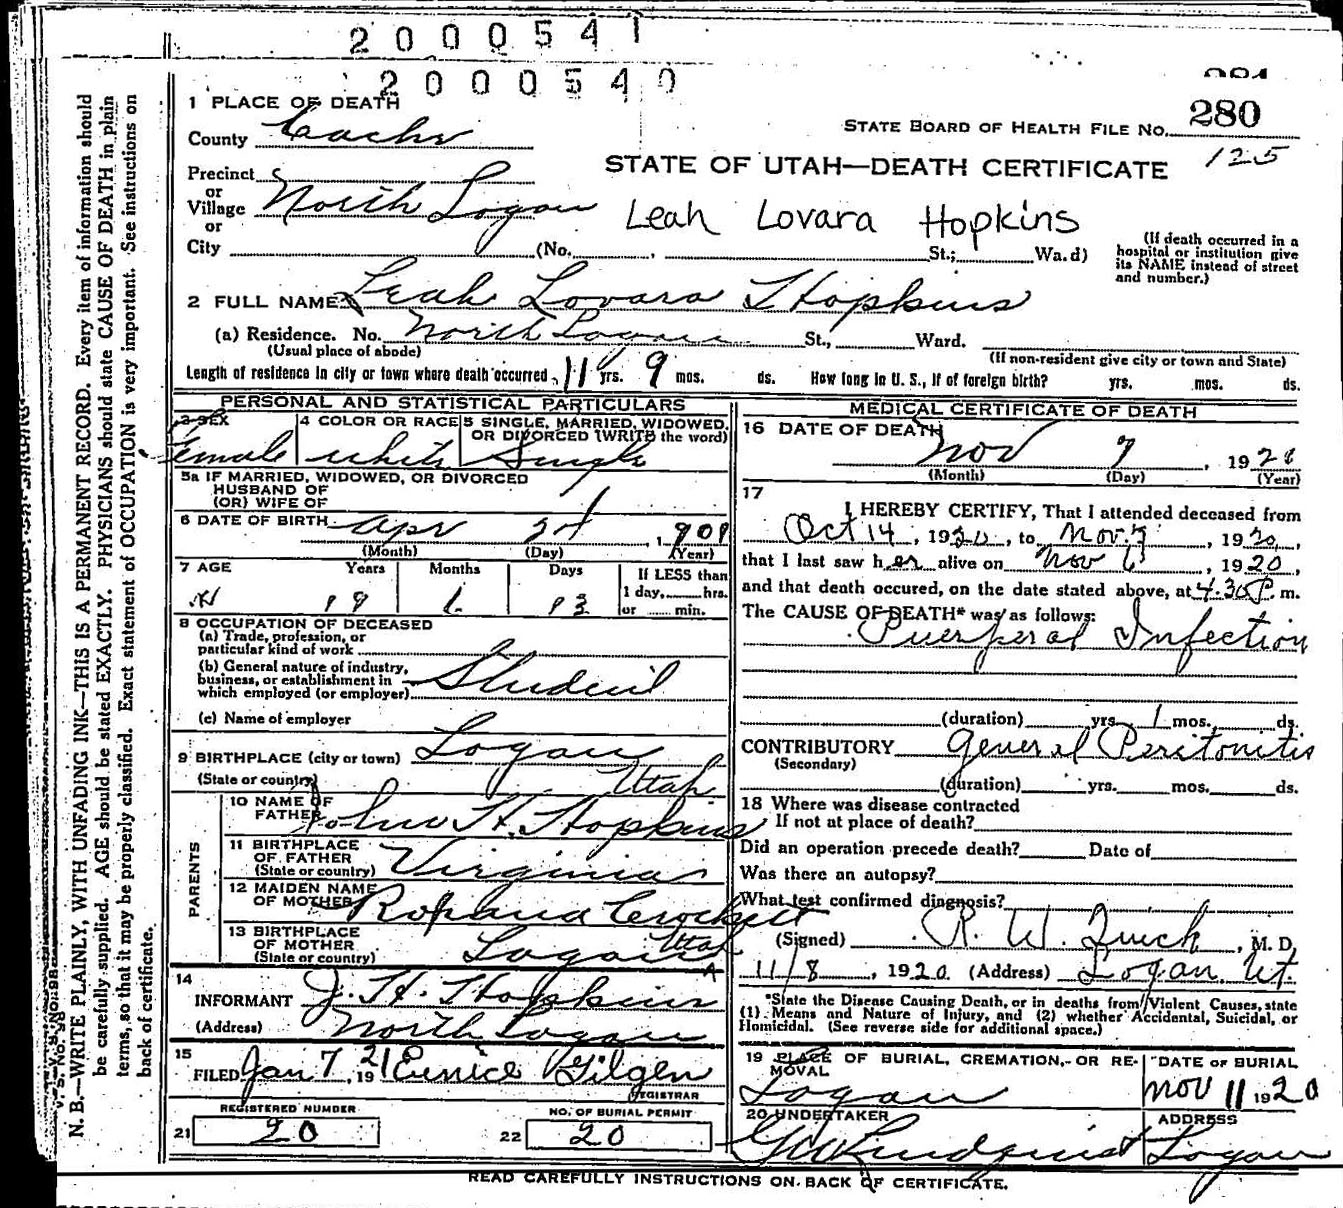 2000541
2000540
280
1 PLACE OF DEATH
County Cache
STATE BOARD OF HEALTH FILE No. 280
125
STATE OF UTAH—DEATH CERTIFICATE
Precinct
or
Village North Logan
or
Leah Lovara Hopkins
City (No. , St.; Wa.d)
(If death occurred in a hospital or institution give its NAME instead of street and number.)
2 FULL NAME Leah Lovara Hopkins
(a) Residence. No. North Logan St., Ward.
(Usual place of abode) (If non-resident give city or town and State)
Length of residence in city or town where death occurred 11 yrs. 9 mos. ds. How long in U. S., if of foreign birth? yrs. mos. ds.
PERSONAL AND STATISTICAL PARTICULARS
3 SEX 4 COLOR OR RACE 5 SINGLE, MARRIED, WIDOWED, OR DIVORCED (WRITE the word)
Female white Single
5a IF MARRIED, WIDOWED, OR DIVORCED
HUSBAND OF
(OR) WIFE OF
6 DATE OF BIRTH Apr 1901
(Month) (Day) (Year)
7 AGE Years Months Days If LESS than
1 day, hrs.
or min.
19
8 OCCUPATION OF DECEASED
(a) Trade, profession, or
particular kind of work
(b) General nature of industry,
business, or establishment in
which employed (or employer) Student
(c) Name of employer
9 BIRTHPLACE (city or town) Logan
(State or country) Utah
PARENTS
10 NAME OF
FATHER John H. Hopkins
11 BIRTHPLACE
OF FATHER
(State or country) Virginia
12 MAIDEN NAME
OF MOTHER Crockett
13 BIRTHPLACE
OF MOTHER
(State or country) Logan Utah
14
INFORMANT J. H. Hopkins
(Address) North Logan
15
FILED Jan 7, 1921 Eunice Gilgen
REGISTRAR
REGISTERED NUMBER NO. OF BURIAL PERMIT
21 20 22 20
MEDICAL CERTIFICATE OF DEATH
16 DATE OF DEATH
Nov 7, 1920
(Month) (Day) (Year)
17
I HEREBY CERTIFY, That I attended deceased from
Oct 14, 1920, to Nov. 7, 1920,
that I last saw her alive on Nov 6, 1920,
and that death occured, on the date stated above, at 4.30 P. m.
The CAUSE OF DEATH* was as follows:
Puerperal Infection
(duration) yrs. 1 mos. ds.
CONTRIBUTORY General Peritonitis
(Secondary)
(duration) yrs. mos. ds.
18 Where was disease contracted
If not at place of death?
Did an operation precede death? Date of
Was there an autopsy?
What test confirmed diagnosis?
(Signed) R. W. , M. D.
11/8, 1920 (Address) Logan Ut.
*State the Disease Causing Death, or in deaths from Violent Causes, state
(1) Means and Nature of Injury, and (2) whether Accidental, Suicidal, or
Homicidal. (See reverse side for additional space.)
19 PLACE OF BURIAL, CREMATION, OR RE- DATE OF BURIAL
MOVAL
Logan Nov 11 1920
20 UNDERTAKER ADDRESS
Lindquist Logan
READ CAREFULLY INSTRUCTIONS ON BACK OF CERTIFICATE.
N. B.—WRITE PLAINLY, WITH UNFADING INK—THIS IS A PERMANENT RECORD. Every item of information should
be carefully supplied. AGE should be stated EXACTLY. PHYSICIANS should state CAUSE OF DEATH in plain
terms, so that it may be properly classified. Exact statement of OCCUPATION is very important. See instructions on
back of certificate.